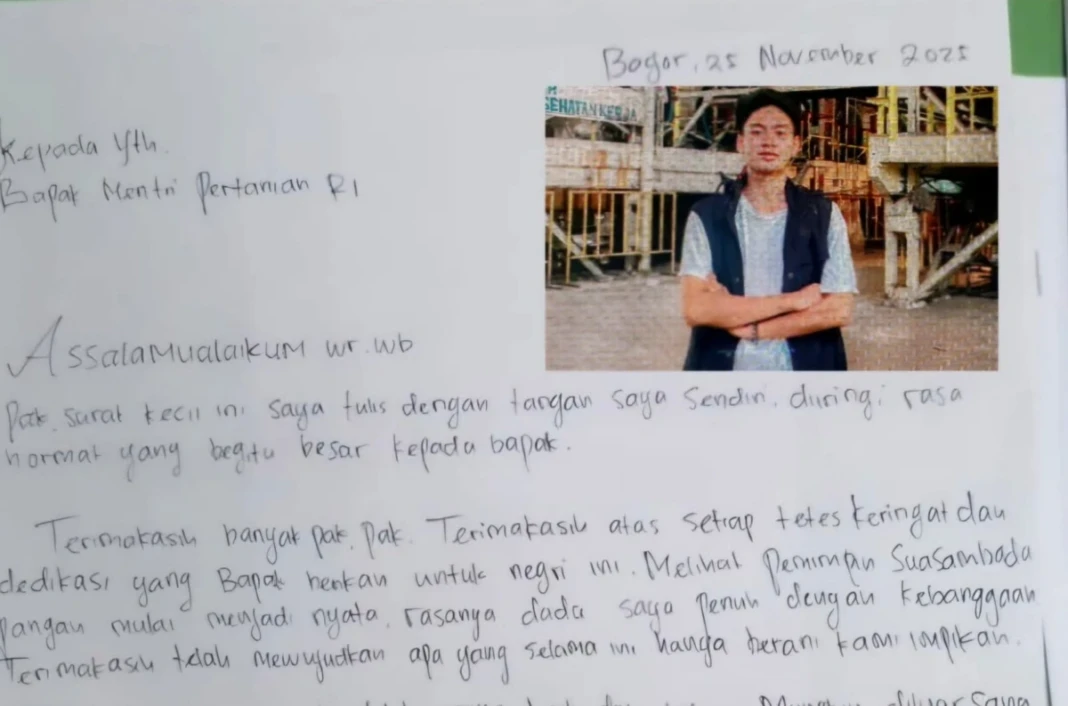 Bogor, 25 November 2025
SEHATAN KERJA
Kepada Yth.
Bapak Mentri Pertanian RI
Assalamualaikum wr.wb
Pak, surat kecil ini saya tulis dengan tangan saya sendiri, diiringi rasa
hormat yang begitu besar kepada bapak.
Terimakasih banyak pak, pak. Terimakasih atas setiap tetes keringat dan
dedikasi yang Bapak berikan untuk negri ini. Melihat Pemimpin Suasambada
pangan mulai menjadi nyata, rasanya dada saya penuh dengan kebanggaan
Terimakasih telah mewujudkan apa yang selama ini hanya berani kami impikan.